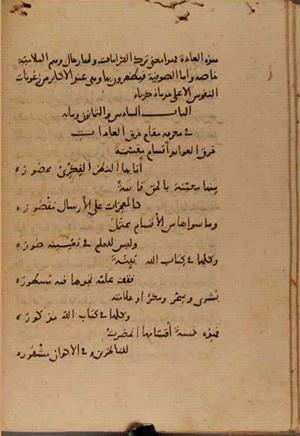 هذه العادة فهذا معنى ترك الكرامات ولها رجال وهم الملامية
خاصة واما الصوفية فيظهرون بها وهي عند الاكابر من رعونات
النفوس الا على حد ما ذكرناه
الباب السادس والثمانون ومائة
في معرفة مقام خرق العادات
خرق العوايد أقسام مقسمة
أتى بها النظر الفكري محصورة
منها معينة بالحق قائمة
كالمعجزات على الارسال مقصورة
وما سواها من الأقسام محتمل
وليس للعلم في تعيينه صورة
وكلها في كتاب الله بينة
فقف عليه تجدها فيه مسطورة
بشرى وسحر ومكر أو علامته
وكلها في كتاب الله مذكورة
فهذه خمسة أقسامها انحصرت
للناظرين وفي الاكوان مشهورة